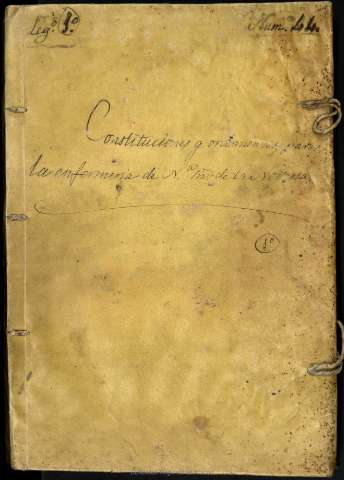 Leg.º 1.º
Num.º 44.
Constituciones y ordenanzas para
la enfermeria de N.
1º